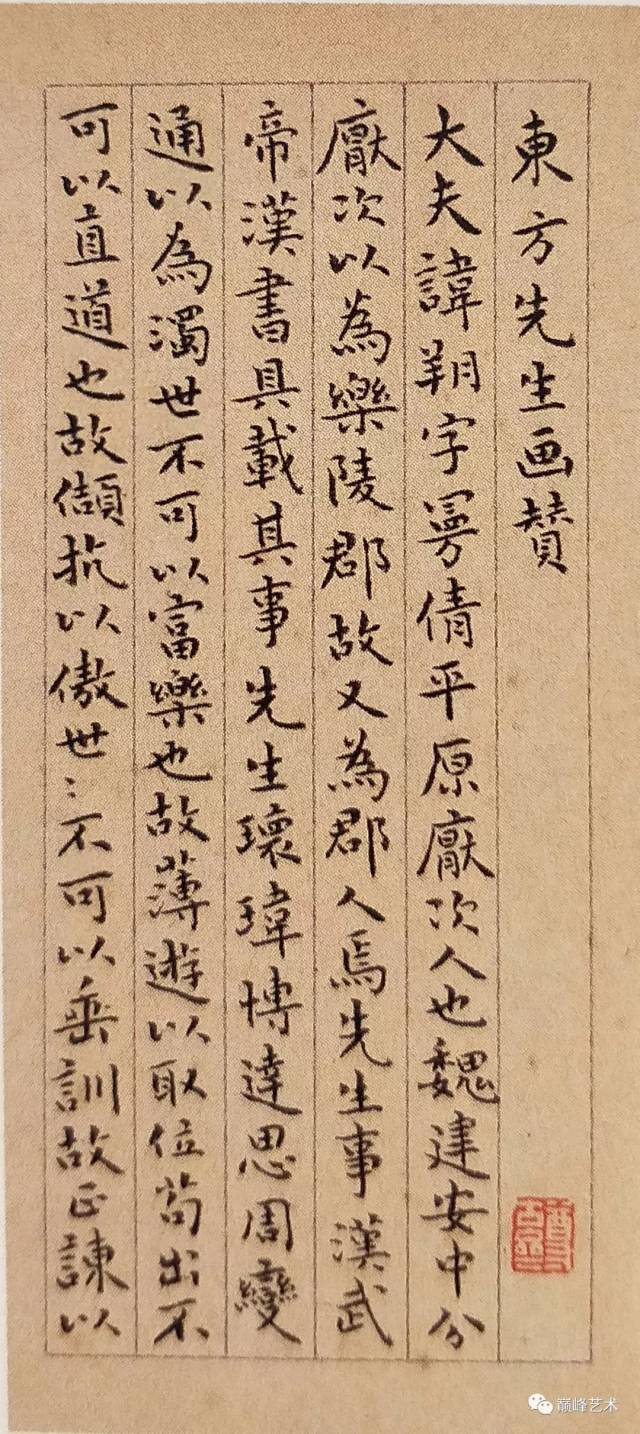 東方先生画賛
大夫諱朔字曼倩平原厭次人也魏建安中分
厭次以為樂陵郡故又為郡人焉先生事漢武
帝漢書具載其事先生瓌瑋博達思周變
通以為濁世不可以富樂也故薄遊以取位苟出不
可以直道也故頡抗以傲世〻不可以垂訓故正諫以
巅峰艺术